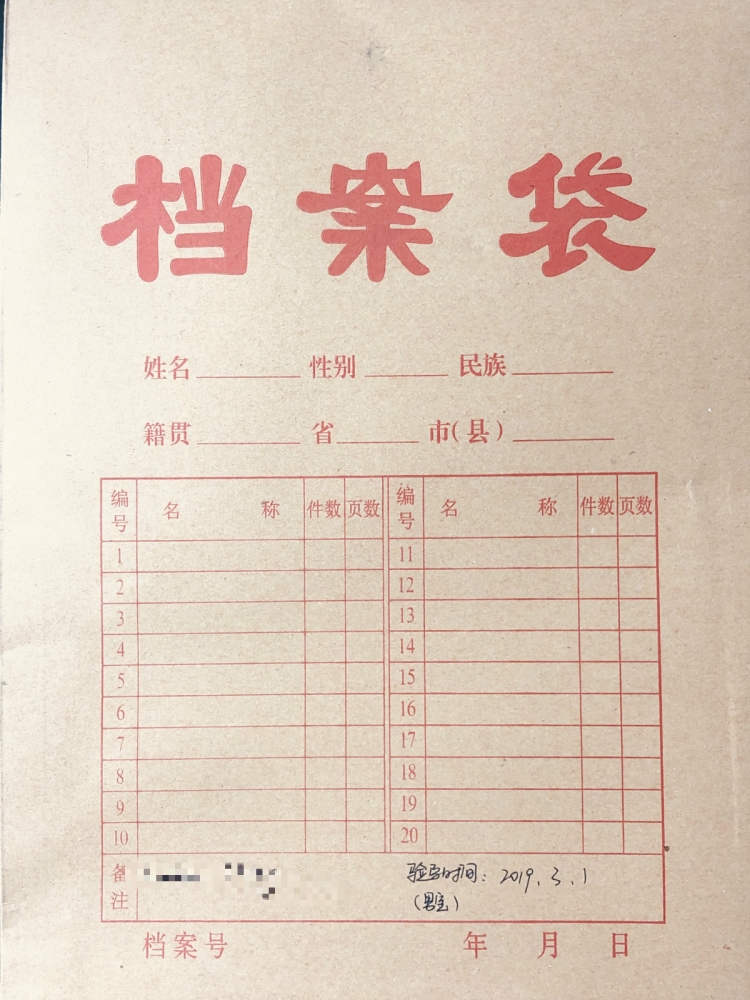 档案袋
姓名 性别 民族
籍贯 省 市(县)
编号 名称 件数 页数 编号 名称 件数 页数
1 11
2 12
3 13
4 14
5 15
6 16
7 17
8 18
9 19
10 20
备注 时间：2019.3.1
档案号 年 月 日